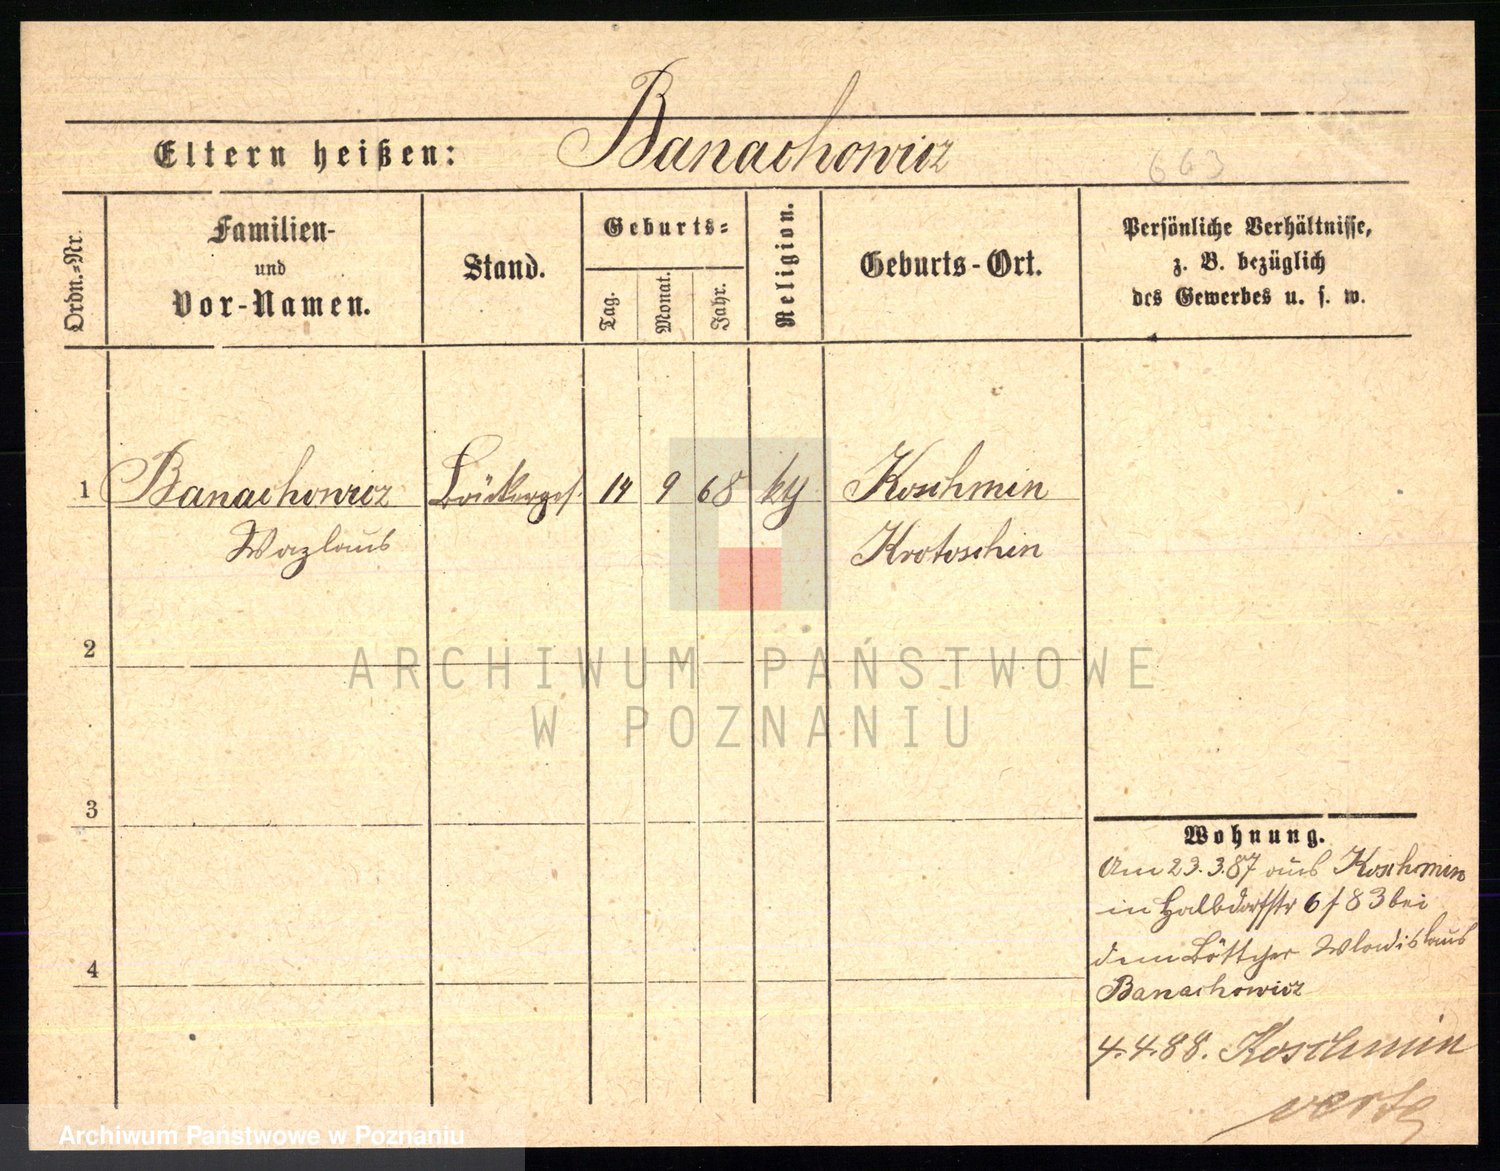 Eltern heißen: Banachowicz
663
Ordn.-Nr.
Familien-
und
Vor-Namen.
Stand.
Geburts-
Tag.
Monat.
Jahr.
Religion.
Geburts-Ort.
Persönliche Verhältnisse,
z. B. bezüglich
des Gewerbes u. s. w.
1 Banachowicz Böttcherges. 14 9 68 kth Koschmin
Wazlaus Krotoschin
2
3
4
Wohnung.
Am 23.3.87 aus Koschmin
in Halbdorfstr 6 f 83 bei
dem Böttcher Wladislaus
Banachowicz
4.4.88. Koschmin
verte
ARCHIWUM PAŃSTWOWE
W POZNANIU
Archiwum Państwowe w Poznaniu